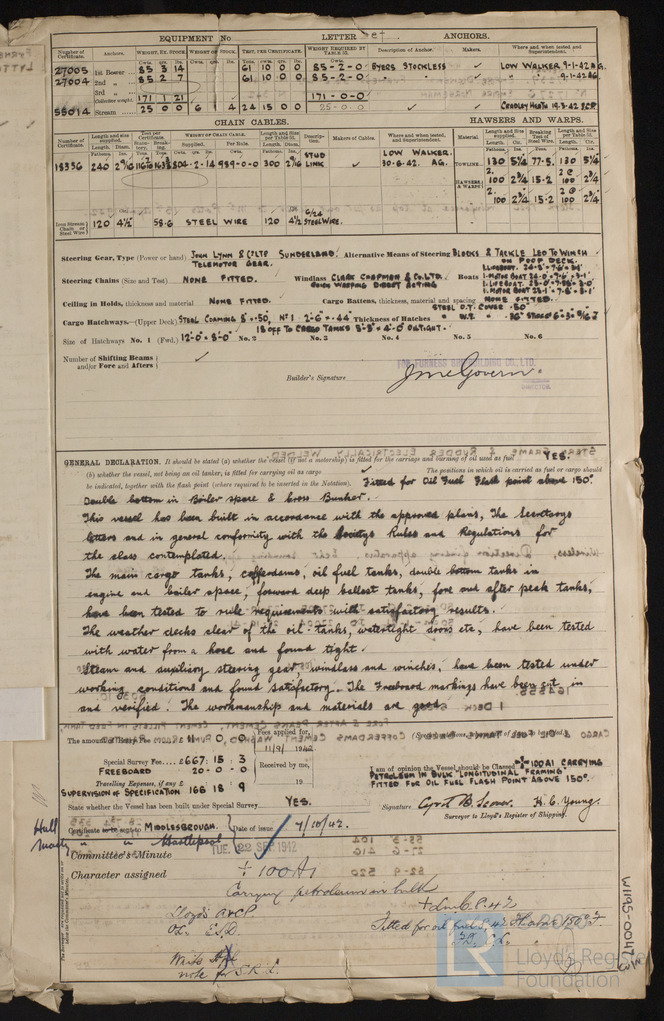 EQUIPMENT No LETTER Set ANCHORS.
Number of Certificate. Anchors. WEIGHT, EX. STOCK. WEIGHT OF STOCK. TEST, PER CERTIFICATE. WEIGHT REQUIRED BY TABLE 53. Description of Anchor. Makers. Where and when tested and Superintendent.
27005 1st Bower 85 3 14 61 10 0 0 85-2-0 BYERS STOCKLESS LOW WALKER 9-1-42 A.G.
27004 2nd " 85 2 7 61 10 0 0 85-2-0 " " " -9-1-42 AG.
3rd "
Collective weight 171 1 21 171-0-0
55014 Stream 25 0 0 6 1 4 24 15 0 0 25-0-0 CRADLEY HEATH 19.3.42 J.C.P.
CHAIN CABLES. HAWSERS AND WARPS.
Number of Certificate. Length and size supplied. Test per Certificate. WEIGHT OF CHAIN CABLE. Length and Size per Table 53. Description. Makers of Cables. Where and when tested, and Superintendent. Material. Length and Size supplied. Breaking Test of Steel Wire. Length and Size per Table 53.
18336 240 2 9/16 804-2-14 959-0-0 300 2 9/16 STUD LINK LOW WALKER. 30-6-42. AG. TOWLINE 130 5¼ 77-5 130 5¼
HAWSERS & WARPS 2. 100 2¾ 15-2 2@ 100 2¾
2. 100 2¾ 15-2 2@ 100 2¾
Iron Stream Chain or Steel Wire 120 4½ 58-6 STEEL WIRE 120 4½ 6/24 STEEL WIRE.
Steering Gear, Type (Power or hand) JOHN LYNN & CO LTD SUNDERLAND. Alternative Means of Steering BLOCKS & TACKLE LED TO WINCH
TELEMOTOR GEAR. ON POOP DECK.
Steering Chains (Size and Test) NONE FITTED. Windlass CLARK CHAPMAN & CO. LTD. Boats
QUICK WARPING DIRECT ACTING
Ceiling in Holds, thickness and material NONE FITTED. Cargo Battens, thickness, material and spacing NONE FITTED.
STEEL O.T. COVER .50"
Cargo Hatchways.—(Upper Deck) STEEL COAMING 8" × .50, No 1 2'-6" × .44" Thickness of Hatches " W.T.
18 OFF TO CARGO TANKS 5'-3" × 4'-0" OILTIGHT.
Size of Hatchways No. 1 (Fwd.) 12'-0" × 8'-0" No. 2 No. 3 No. 4 No. 5 No. 6
Number of Shifting Beams and/or Fore and Afters
FOR FURNESS SHIPBUILDING CO., LTD.
Builder's Signature J McGovern
DIRECTOR
GENERAL DECLARATION. It should be stated (a) whether the vessel (if not a motorship) is fitted for the carriage and burning of oil used as fuel YES.
(b) whether the vessel, not being an oil tanker, is fitted for carrying oil as cargo The positions in which oil is carried as fuel or cargo should
be indicated, together with the flash point (where required to be inserted in the Notation). Fitted for Oil Fuel Flash point above 150°
Double bottom in Boiler space & Cross Bunker.
This vessel has been built in accordance with the approved plans, the Secretarys
letters and in general conformity with the Societys Rules and Regulations for
the class contemplated.
The main cargo tanks, cofferdams, oil fuel tanks, double bottom tanks in
engine and boiler space, forward deep ballast tanks, fore and after peak tanks,
have been tested to rule requirements with satisfactory results.
The weather decks clear of the oil tanks, watertight doors etc, have been tested
with water from a hose and found tight.
Steam and auxiliary steering gear, windlass and winches, have been tested under
working conditions and found satisfactory. The Freeboard markings have been cut in
and verified. The workmanship and materials are good.
The amount of Entry Fee 0 0
Fees applied for 11/9/1942
Special Survey Fee £667 : 15 : 3 Received by me,
FREEBOARD 20-0-0 19
Travelling Expenses, if any £
SUPERVISION of SPECIFICATION 166 18 9
I am of opinion the Vessel should be Classed ✠100A1 CARRYING
PETROLEUM IN BULK LONGITUDINAL FRAMING
FITTED FOR OIL FUEL FLASH POINT ABOVE 150°.
State whether the Vessel has been built under Special Survey YES.
Signature H. C. Young.
Surveyor to Lloyd's Register of Shipping.
Hull Certificate to be sent to MIDDLESBROUGH. Date of issue 7/10/42.
Machy " " Hartlepool
Committee's Minute TUE. 22 SEP 1942
Character assigned + 100A1
Carrying petroleum in bulk
Lloyd's A&CP + LMC 9.42
Fitted for oil fuel 9.42 F.P. above 150° F.
F.D. CL.
Write
note for S.R.L.
W1195-0047
LR
Lloyd's Register
Foundation